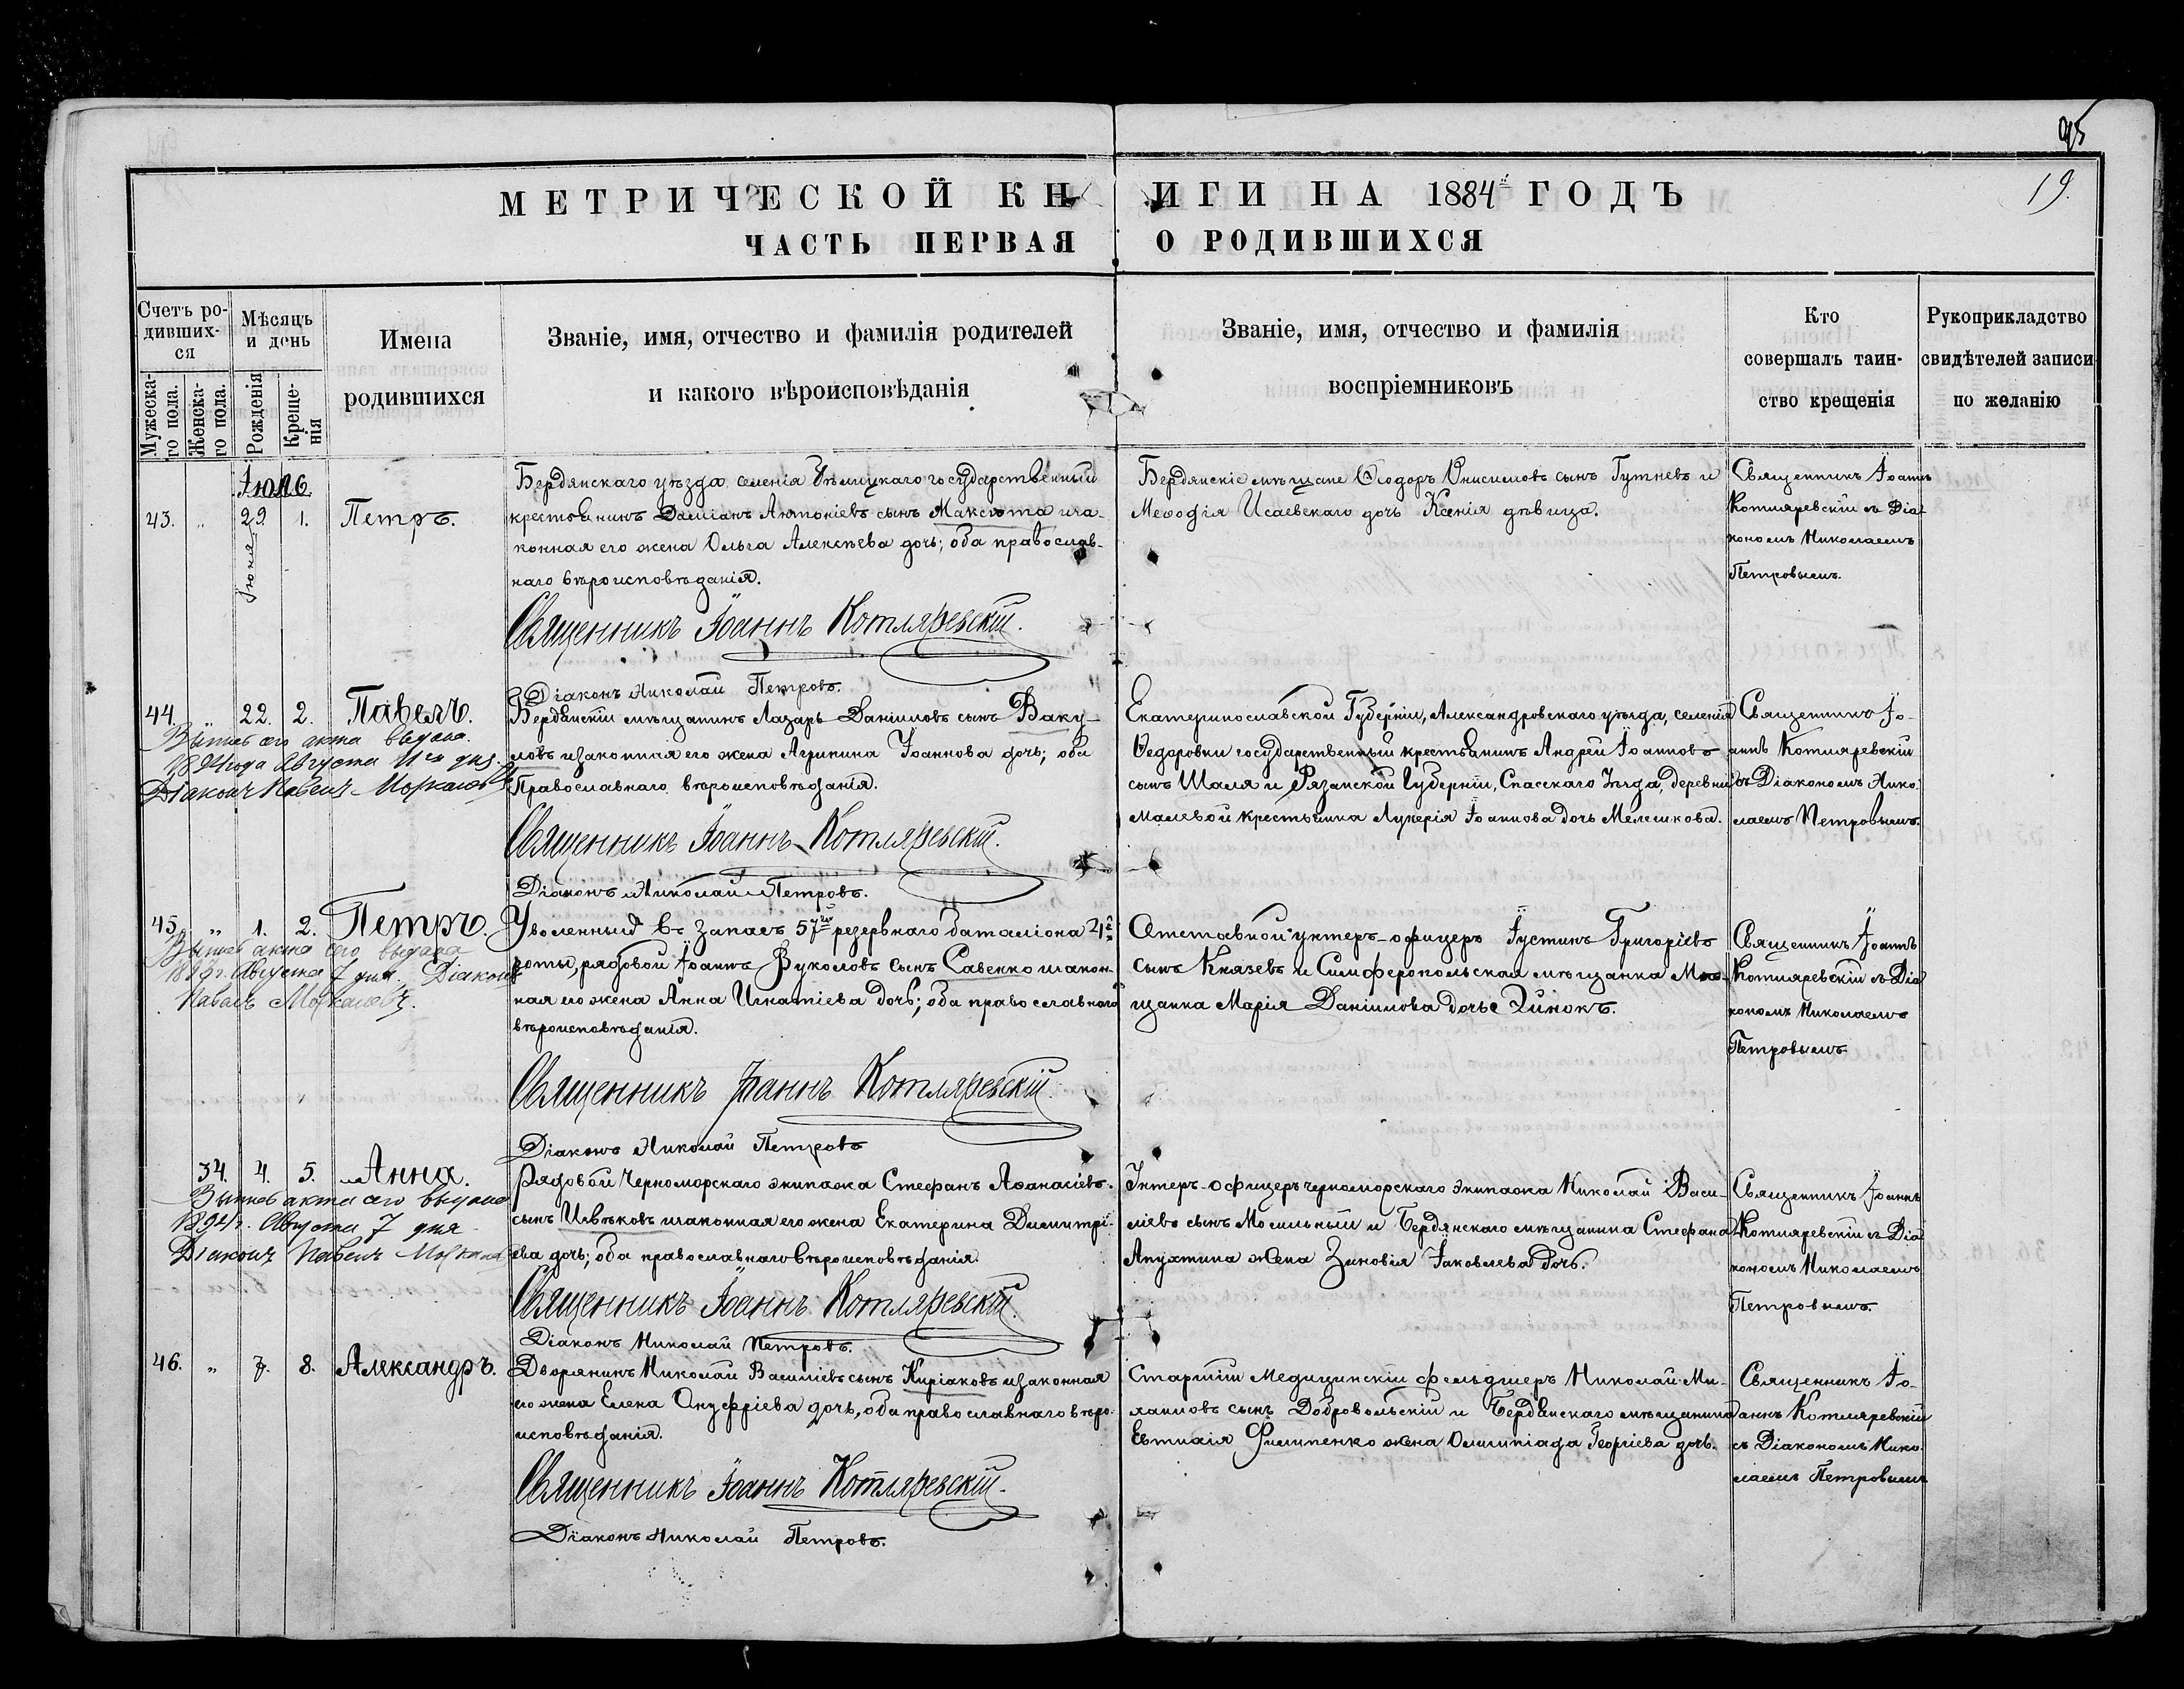 95
19.
МЕТРИЧЕСКОЙ КНИГИ НА 1884й ГОДЪ
ЧАСТЬ ПЕРВАЯ О РОДИВШИХСЯ
Счетъ ро-
дивших-
ся
Мужеска-
го пола.
Женска-
го пола.
Мѣсяцъ
и день
Рожденія
Креще-
нія
Имена
родившихся
Званіе, имя, отчество и фамилія родителей
и какого вѣроисповѣданія
Званіе, имя, отчество и фамилія
воспріемниковъ
Кто
совершалъ таин-
ство крещенія
Рукоприкладство
свидѣтелей записи
по желанію
43. „ 29 1. Петръ.
Іюня
Бердянскаго уѣзда селенія государственный
крестьянинъ Даміанъ Антоніевъ сынъ Максюта иза-
конная его жена Ольга Алексѣева дочь; оба православ-
наго вѣроисповѣданія.
Священникъ Іоаннъ Котляревскій.
Діаконъ Николай Петровъ.
Бердянскіе мѣщане Ѳеодоръ Онисимовъ сынъ Гутневъ и
Меѳодія Исаевскаго дочь Ксенія дѣвица.
Священникъ Іоаннъ
Котляревскій съ Діа-
кономъ Николаемъ
Петровымъ.
44. „ 22. 2. Павелъ.
1894 года Августа 11го дня.
Діаконъ Павелъ
Бердянскій мѣщанинъ Лазарь Даніиловъ сынъ Ваку-
ловъ изаконная его жена Агрипина Іоаннова дочь; оба
Православнаго вѣроисповѣданія.
Священникъ Іоаннъ Котляревскій.
Діаконъ Николай Петровъ.
Екатеринославской Губерніи, Александровскаго уѣзда, селенія
Ѳедоровки государственный крестьянинъ Андрей Іоанновъ
сынъ Шаля и Рязанской Губерніи, Спасскаго Уѣзда, деревни
Малевой крестьянка Лукерія Іоаннова дочь Мелешкова.
Священникъ Іо-
аннъ Котляревскій
съ Діакономъ Нико-
лаемъ Петровымъ.
45. „ 1. 2. Петръ.
Августа 7 дня. Діаконъ
Павелъ
Уволенный въ запасъ 57го резервнаго баталіона
роты, рядовой Іоаннъ Вуколовъ сынъ Савенко изакон-
ная его жена Анна Игнатіева дочь; оба православнаго
вѣроисповѣданія.
Священникъ Іоаннъ Котляревскій.
Діаконъ Николай Петровъ
Отставной унтеръ-офицеръ Іустинъ Григоріевъ
сынъ Князевъ и Симферопольская мѣщанка
щанка Марія Даніилова дочь
Священникъ Іоаннъ
Котляревскій съ Діа-
кономъ Николаемъ
Петровымъ
34. 4. 5. Анна.
1894 г. Августа 7 дня
Діаконъ Павелъ
Рядовой Черноморскаго экипажа Стефанъ Аѳанасіевъ
сынъ Ивѣковъ изаконная его жена Екатерина Димитрі-
ева дочь; оба православнаго вѣроисповѣданія.
Священникъ Іоаннъ Котляревскій.
Діаконъ Николай Петровъ.
Унтеръ-офицеръ черноморскаго экипажа Николай Васи-
ліевъ сынъ Могильный и Бердянскаго мѣщанина Стефана
Апухтина жена Зиновія Іаковлева дочь.
Священникъ Іоаннъ
Котляревскій съ Діа-
кономъ Николаемъ
Петровымъ.
46. „ 7. 8. Александръ.
Дворянинъ Николай Василіевъ сынъ Киріаковъ изаконная
его жена Елена Онуфріева дочь, оба православнаго вѣро-
исповѣданія.
Священникъ Іоаннъ Котляревскій.
Діаконъ Николай Петровъ.
Старшій Медицинскій фельдшеръ Николай Ми-
хаиловъ сынъ Добровольскій и Бердянскаго мѣщанина
Евтихія Филипенко жена Олимпіада Георгіева дочь.
Священникъ Іо-
аннъ Котляревскій
съ Діакономъ Нико-
лаемъ Петровымъ